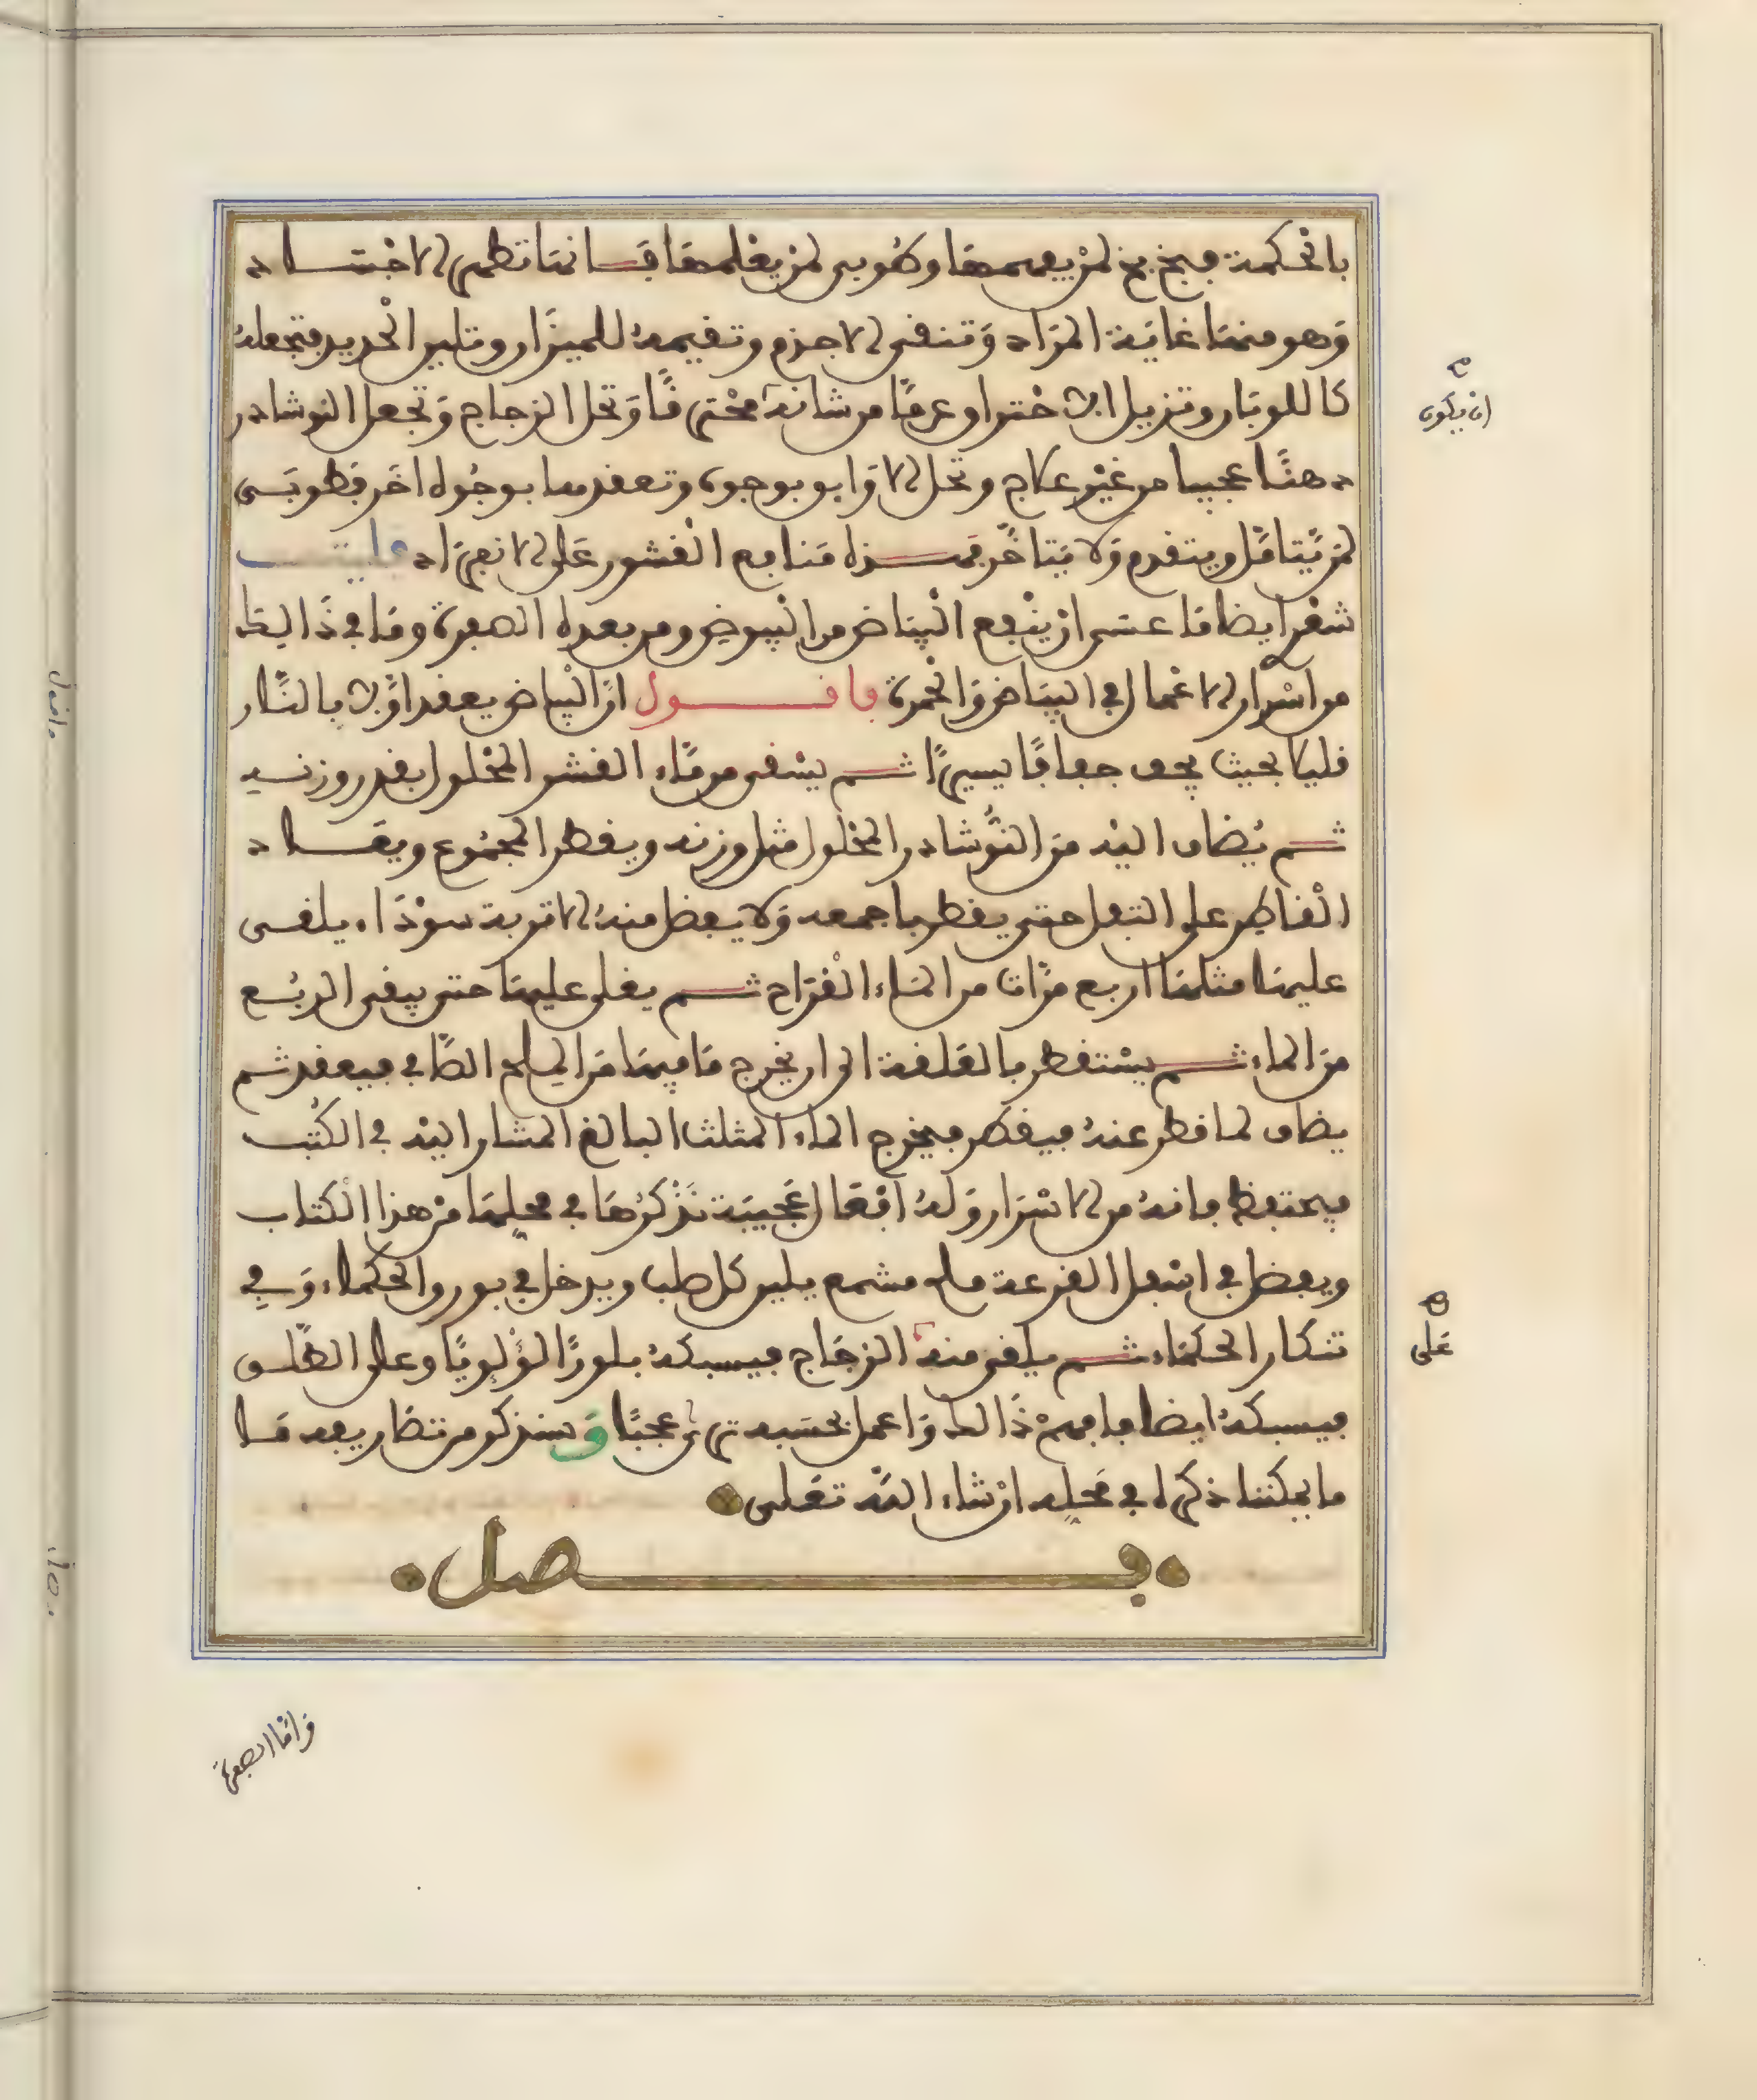 بالحكمة فبخ بخ لمن يفهمها وطوبى لمن يعلمها فانها تطهر الاجساد
وهو منها غاية المراد وتنقى الاجزم وتقيمه للميزان وتلين الحديد فتجعله
كاللوبان وتزيل ابن ختر او عرقا من شانه محترقا وتحل الزجاج وتجعل النوشادر
دهنا عجيبا من غير علاج وتحل الاوابو بوجوه وتعقدها بوجوه اخر فطوبى
لمن يتامل ويتقدم ولا يتاخر فهذه منافع القشور على الانفراد فليت
شعرى ايضا ما عسى ان ينفع البياض من البيوض ومن بعده الصفرة وما فى ذالك
من اسرار الاعمال فى البياض والحمرة فاقول ان البياض يعقد اولا بالنار
قليلا بحيث يجف جفافا يسيرا ثم يسقى من ماء القشر المحلول بقدر وزنه
ثم يضاف اليه من النوشادر المحلول مثل وزنه ويقطر المجموع ويعاد
القاطر على الثفل حتى يقطر باجمعه ولا يفضل منه الا تربة سوداء يلقى
عليها مثلها اربع مرات من الماء القراح ثم يغلى عليها حتى يبقى الربع
من الماء ثم يستقطر بالعلقة الى ان يخرج ما فيها من الملح الصافى فيعقد ثم
يضاف لما قطر عنه فيقطر فيخرج الماء المثلث البالغ المشار اليه فى الكتب
فيحتفظ به فانه من الاسرار وله افعال عجيبة نذكرها فى محلها من هذا الكتاب
ويفضل فى اسفل القرعة ملح مشمع يلين كل صلب ويدخل فى بورو الحكماء وفى
تنكار الحكماء ثم يلقى منه الزجاج فيسبكه بلورا لؤلويا وعلى الطلق
فيسبكه ايضا فافهم ذالك واعمل بحسبه ترى عجبا وسنذكر من تضاريفه ما
ما يمكننا ذكره فى محله ان شاء الله تعلى
فصل
ان يكون
على
واما الصفرة